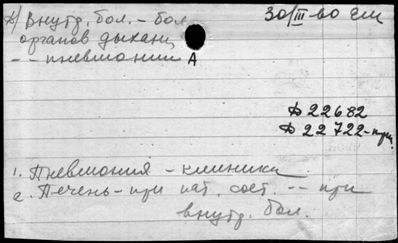 х) Внутр. бол. – бол. 30/III-60 ем
органов дыхани
-- – пневмонии А
Д 22682
Д 22722-при
1. Пневмония – клиника
2. Печень – при пат. сост. -- – при
внутр. бол.